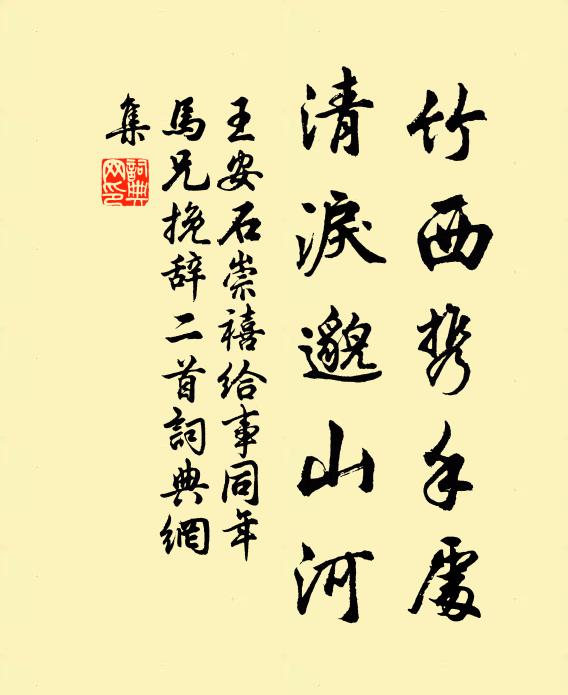 竹西携手處
清淚邈山河
王安石崇禧給事同年
馬兄挽辞二首詞典網
集
詞典
網印